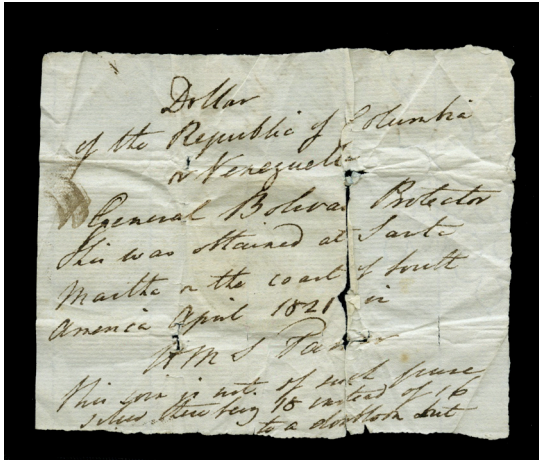 Dollar
of the Republic of Columbia
or Venezuella
General Bolivar Protector
This was obtained at Santa
Martha on the coast of South
America April 1821 in
H M S
this coin is not of such pure
silver there being 18 instead of 16
to a doubloon